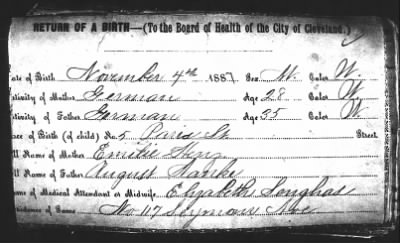 RETURN OF A BIRTH—(To the Board of Health of the City of Cleveland.)
ate of Birth November 4th 1887 Sex M. Color W.
ativity of Mother German Age 28 Color W
ativity of Father German Age 35 Color W.
ace of Birth (of child) No. 5 Perris St. Street
ll Name of Mother Emilie
ll Name of Father August Hanke
ame of Medical Attendant or Midwife Elizabeth Longhas
idence of Same No 117 Seymour Ave